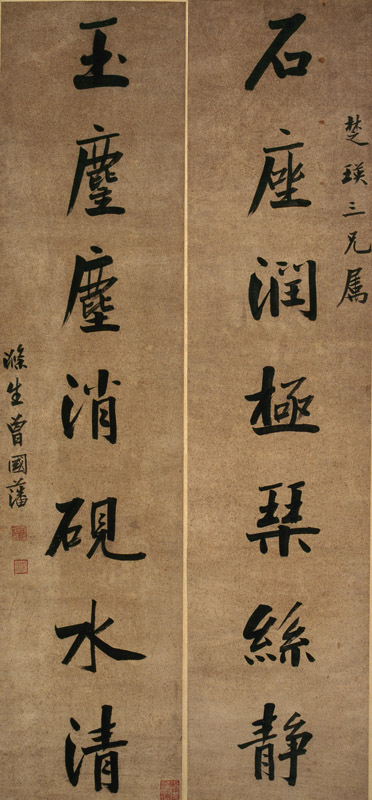 楚瑛三兄属
石座潤極琹絲静
玉麈塵消硯水清
滌生曾國藩